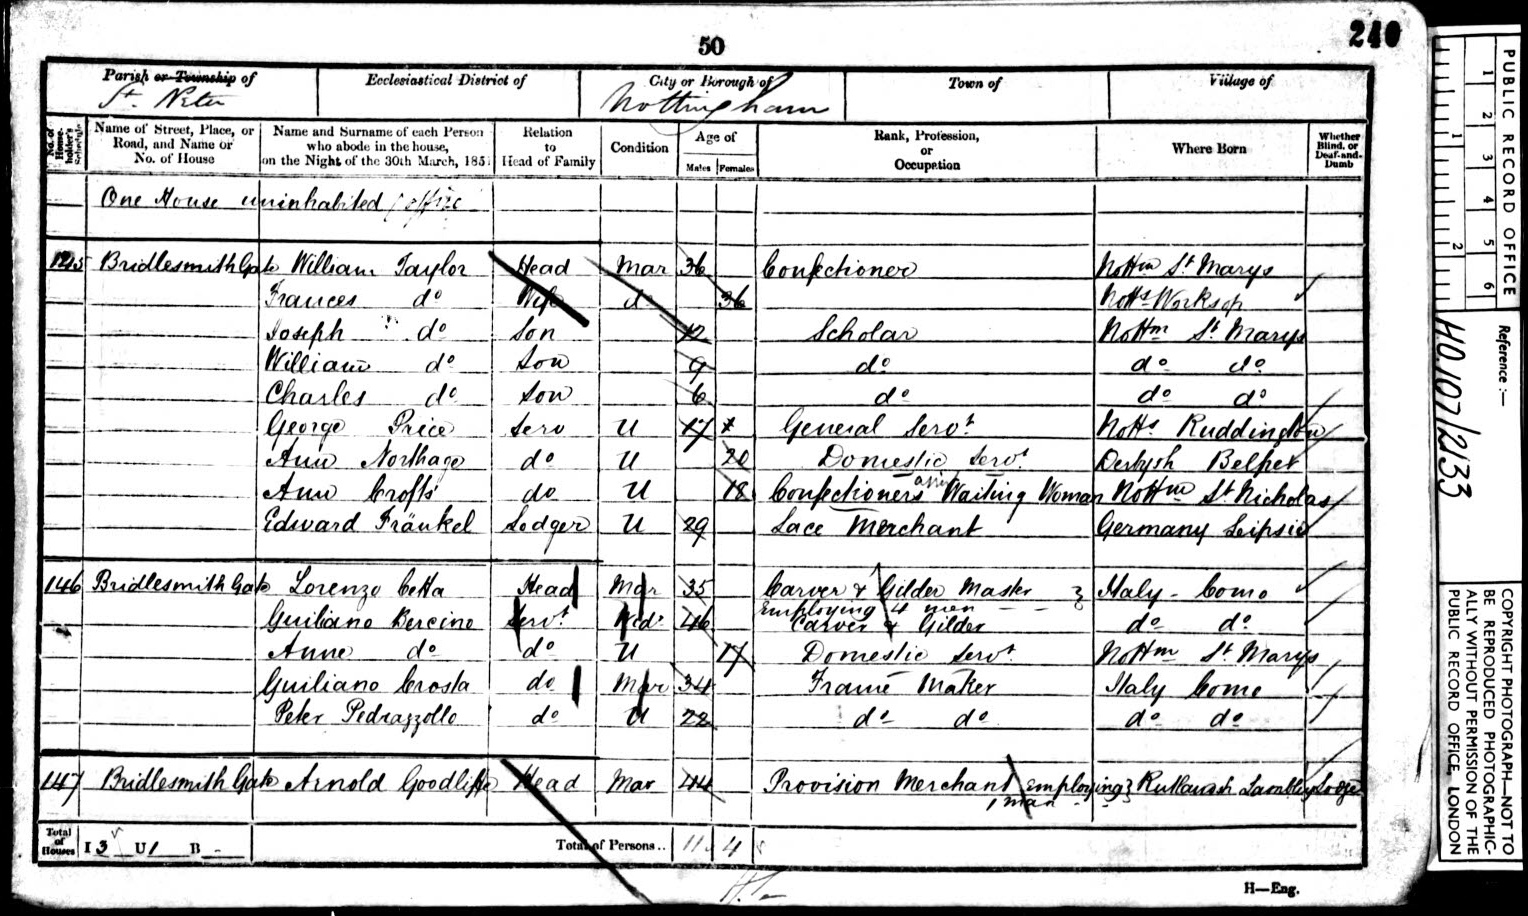 50
240
Parish or Township of
St. Peter
Ecclesiastical District of
City or Borough of
Nottingham
Town of
Village of
No. of House-holder's Schedule
Name of Street, Place, or Road, and Name or No. of House
Name and Surname of each Person who abode in the house, on the Night of the 30th March, 185
Relation to Head of Family
Condition
Age of
Males Females
Rank, Profession, or Occupation
Where Born
Whether Blind, or Deaf-and-Dumb
One House uninhabited (office
145 Bridlesmith Gate William Taylor Head Mar 36 Confectioner Nottm St Marys
Frances do Wife do 36 Notts Worksop
Joseph do Son 12 Scholar Nottm St Marys
William do Son 9 do do do
Charles do Son 6 do do do
George Price Serv U 17 General Servt Notts Ruddington
Ann Northage do U 20 Domestic Servt Derbysh Belper
Ann Crofts do U 18 Confectioners Waiting Woman Nottm St Nicholas
Edward Fränkel Lodger U 29 Lace Merchant Germany Leipsic
146 Bridlesmith Gate Lorenzo Cetta Head Mar 35 Carver & Gilder Master Italy - Como
Employing 4 men
Guiliano Bercino Servt Wid. 46 Carver & Gilder do do
Anne do do U 17 Domestic Servt Nottm St Marys
Guiliano Crosta do Mar 34 Frame Maker Italy Como
Peter Pedrazzollo do U 22 do do do do
147 Bridlesmith Gate Arnold Goodliffe Head Mar 44 Provision Merchant employing Lodge
1 man
Total of Houses I 3 U 1 B -
Total of Persons .. 11 4
H—Eng.
PUBLIC RECORD OFFICE
1 2 3 4 5 6
1 2
Reference :—
HO.107/2133
COPYRIGHT PHOTOGRAPH—NOT TO
BE REPRODUCED PHOTOGRAPHIC-
ALLY WITHOUT PERMISSION OF THE
PUBLIC RECORD OFFICE, LONDON